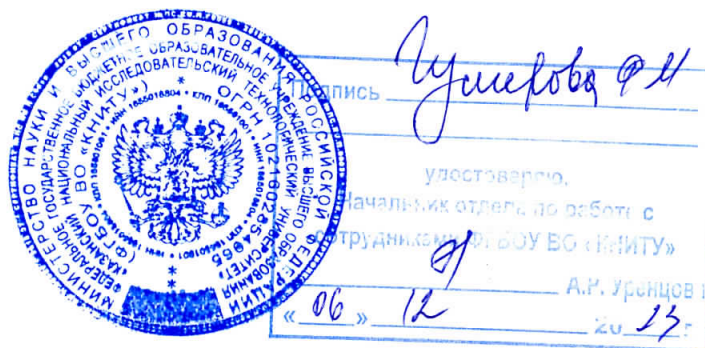 МИНИСТЕРСТВО НАУКИ И ВЫСШЕГО ОБРАЗОВАНИЯ РОССИЙСКОЙ ФЕДЕРАЦИИ
ФЕДЕРАЛЬНОЕ ГОСУДАРСТВЕННОЕ БЮДЖЕТНОЕ ОБРАЗОВАТЕЛЬНОЕ УЧРЕЖДЕНИЕ ВЫСШЕГО ОБРАЗОВАНИЯ
«КАЗАНСКИЙ НАЦИОНАЛЬНЫЙ ИССЛЕДОВАТЕЛЬСКИЙ ТЕХНОЛОГИЧЕСКИЙ УНИВЕРСИТЕТ»
(ФГБОУ ВО «КНИТУ») * ОГРН 1021602854965
Подпись
удостоверяю.
Начальник отдела по работе с
сотрудниками ФГБОУ ВО «КНИТУ»
А.Р.
«06» 12 20 23 г.